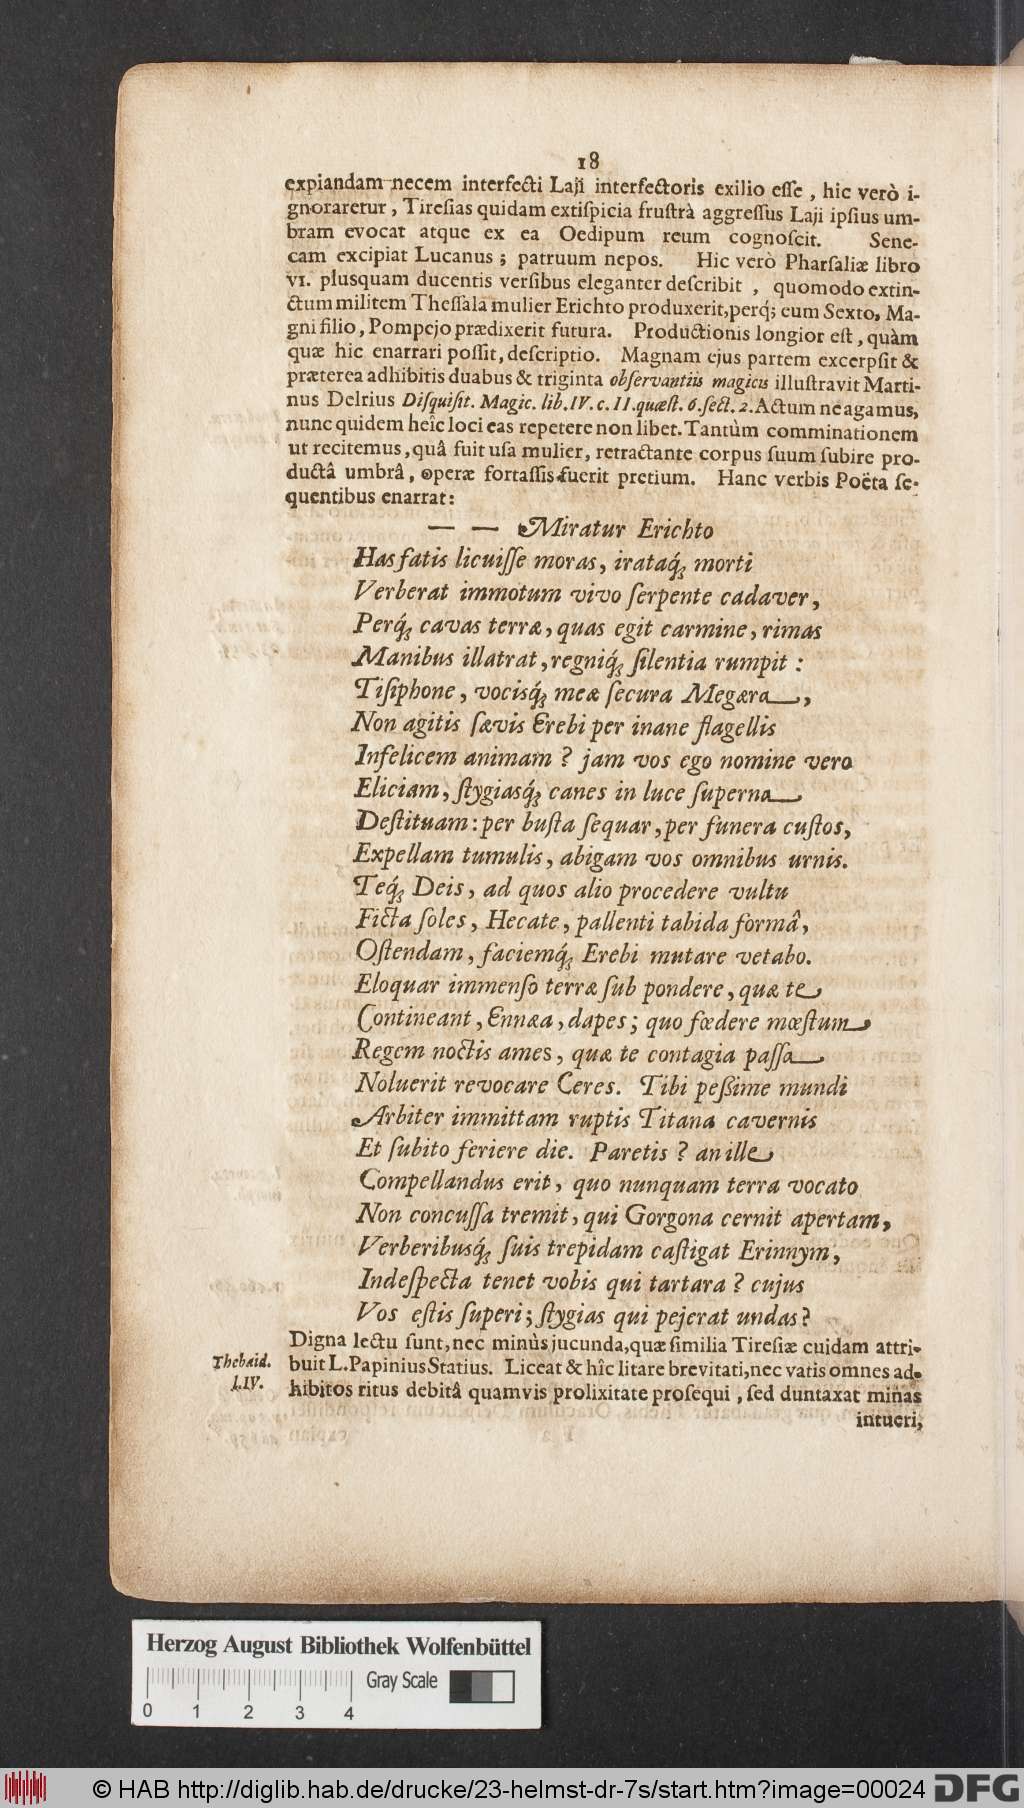 18
expiandam necem interfecti Laji interfectoris exilio eſſe, hic verò i-
gnoraretur, Tireſias quidam extiſpicia fruſtrà aggreſſus Laji ipſius um-
bram evocat atque ex ea Oedipum reum cognoſcit. Sene-
cam excipiat Lucanus; patruum nepos. Hic verò Pharſaliæ libro
VI. plusquam ducentis verſibus eleganter deſcribit, quomodo extin-
ctum militem Theſſala mulier Erichto produxerit, perq́; eum Sexto, Ma-
gni filio, Pompejo prædixerit futura. Productionis longior eſt, quàm
quæ hic enarrari poſſit, deſcriptio. Magnam ejus partem excerpſit &
præterea adhibitis duabus & triginta obſervantiis magicis illuſtravit Marti-
nus Delrius Diſquiſit. Magic. lib. IV. c. II. quæſt. 6. ſect. 2. Actum ne agamus,
nunc quidem heîc loci eas repetere non libet. Tantùm comminationem
ut recitemus, quâ fuit uſa mulier, retractante corpus ſuum ſubire pro-
ductâ umbrâ, operæ fortaſſis fuerit pretium. Hanc verbis Poëta ſe-
quentibus enarrat:
— — Miratur Erichto
Has fatis licuiſſe moras, irataq́; morti
Verberat immotum vivo ſerpente cadaver,
Perq́; cavas terræ, quas egit carmine, rimas
Manibus illatrat, regniq́; ſilentia rumpit:
Tiſiphone, vocisq́; meæ ſecura Megæra,
Non agitis ſævis Erebi per inane flagellis
Infelicem animam? jam vos ego nomine vero
Eliciam, ſtygiasq́; canes in luce ſuperna
Deſtituam: per buſta ſequar, per funera cuſtos,
Expellam tumulis, abigam vos omnibus urnis.
Teq́; Deis, ad quos alio procedere vultu
Ficta ſoles, Hecate, pallenti tabida formâ,
Oſtendam, faciemq́; Erebi mutare vetabo.
Eloquar immenſo terræ ſub pondere, quæ te
Contineant, Ennæa, dapes; quo fœdere mœſtum
Regem noctis ames, quæ te contagia paſſa
Noluerit revocare Ceres. Tibi peßime mundi
Arbiter immittam ruptis Titana cavernis
Et ſubito feriere die. Paretis? an ille
Compellandus erit, quo nunquam terra vocato
Non concuſſa tremit, qui Gorgona cernit apertam,
Verberibusq́; ſuis trepidam caſtigat Erinnym,
Indeſpecta tenet vobis qui tartara? cujus
Vos eſtis ſuperi; ſtygias qui pejerat undas?
Digna lectu ſunt, nec minùs jucunda, quæ ſimilia Tireſiæ cuidam attri-
Thebaid. buit L. Papinius Statius. Liceat & hîc litare brevitati, nec vatis omnes ad-
l. IV. hibitos ritus debitâ quamvis prolixitate proſequi, ſed duntaxat minas
intueri,
Herzog August Bibliothek Wolfenbüttel
Gray Scale
0 1 2 3 4
© HAB http://diglib.hab.de/drucke/23-helmst-dr-7s/start.htm?image=00024 DFG